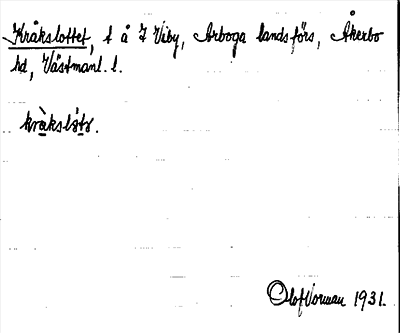 Kråkslottet, t å I Viby, Arboga landsförs, Åkerbo
hd, Västmanl. l.
kràkslòtə.
Olof Norman 1931.